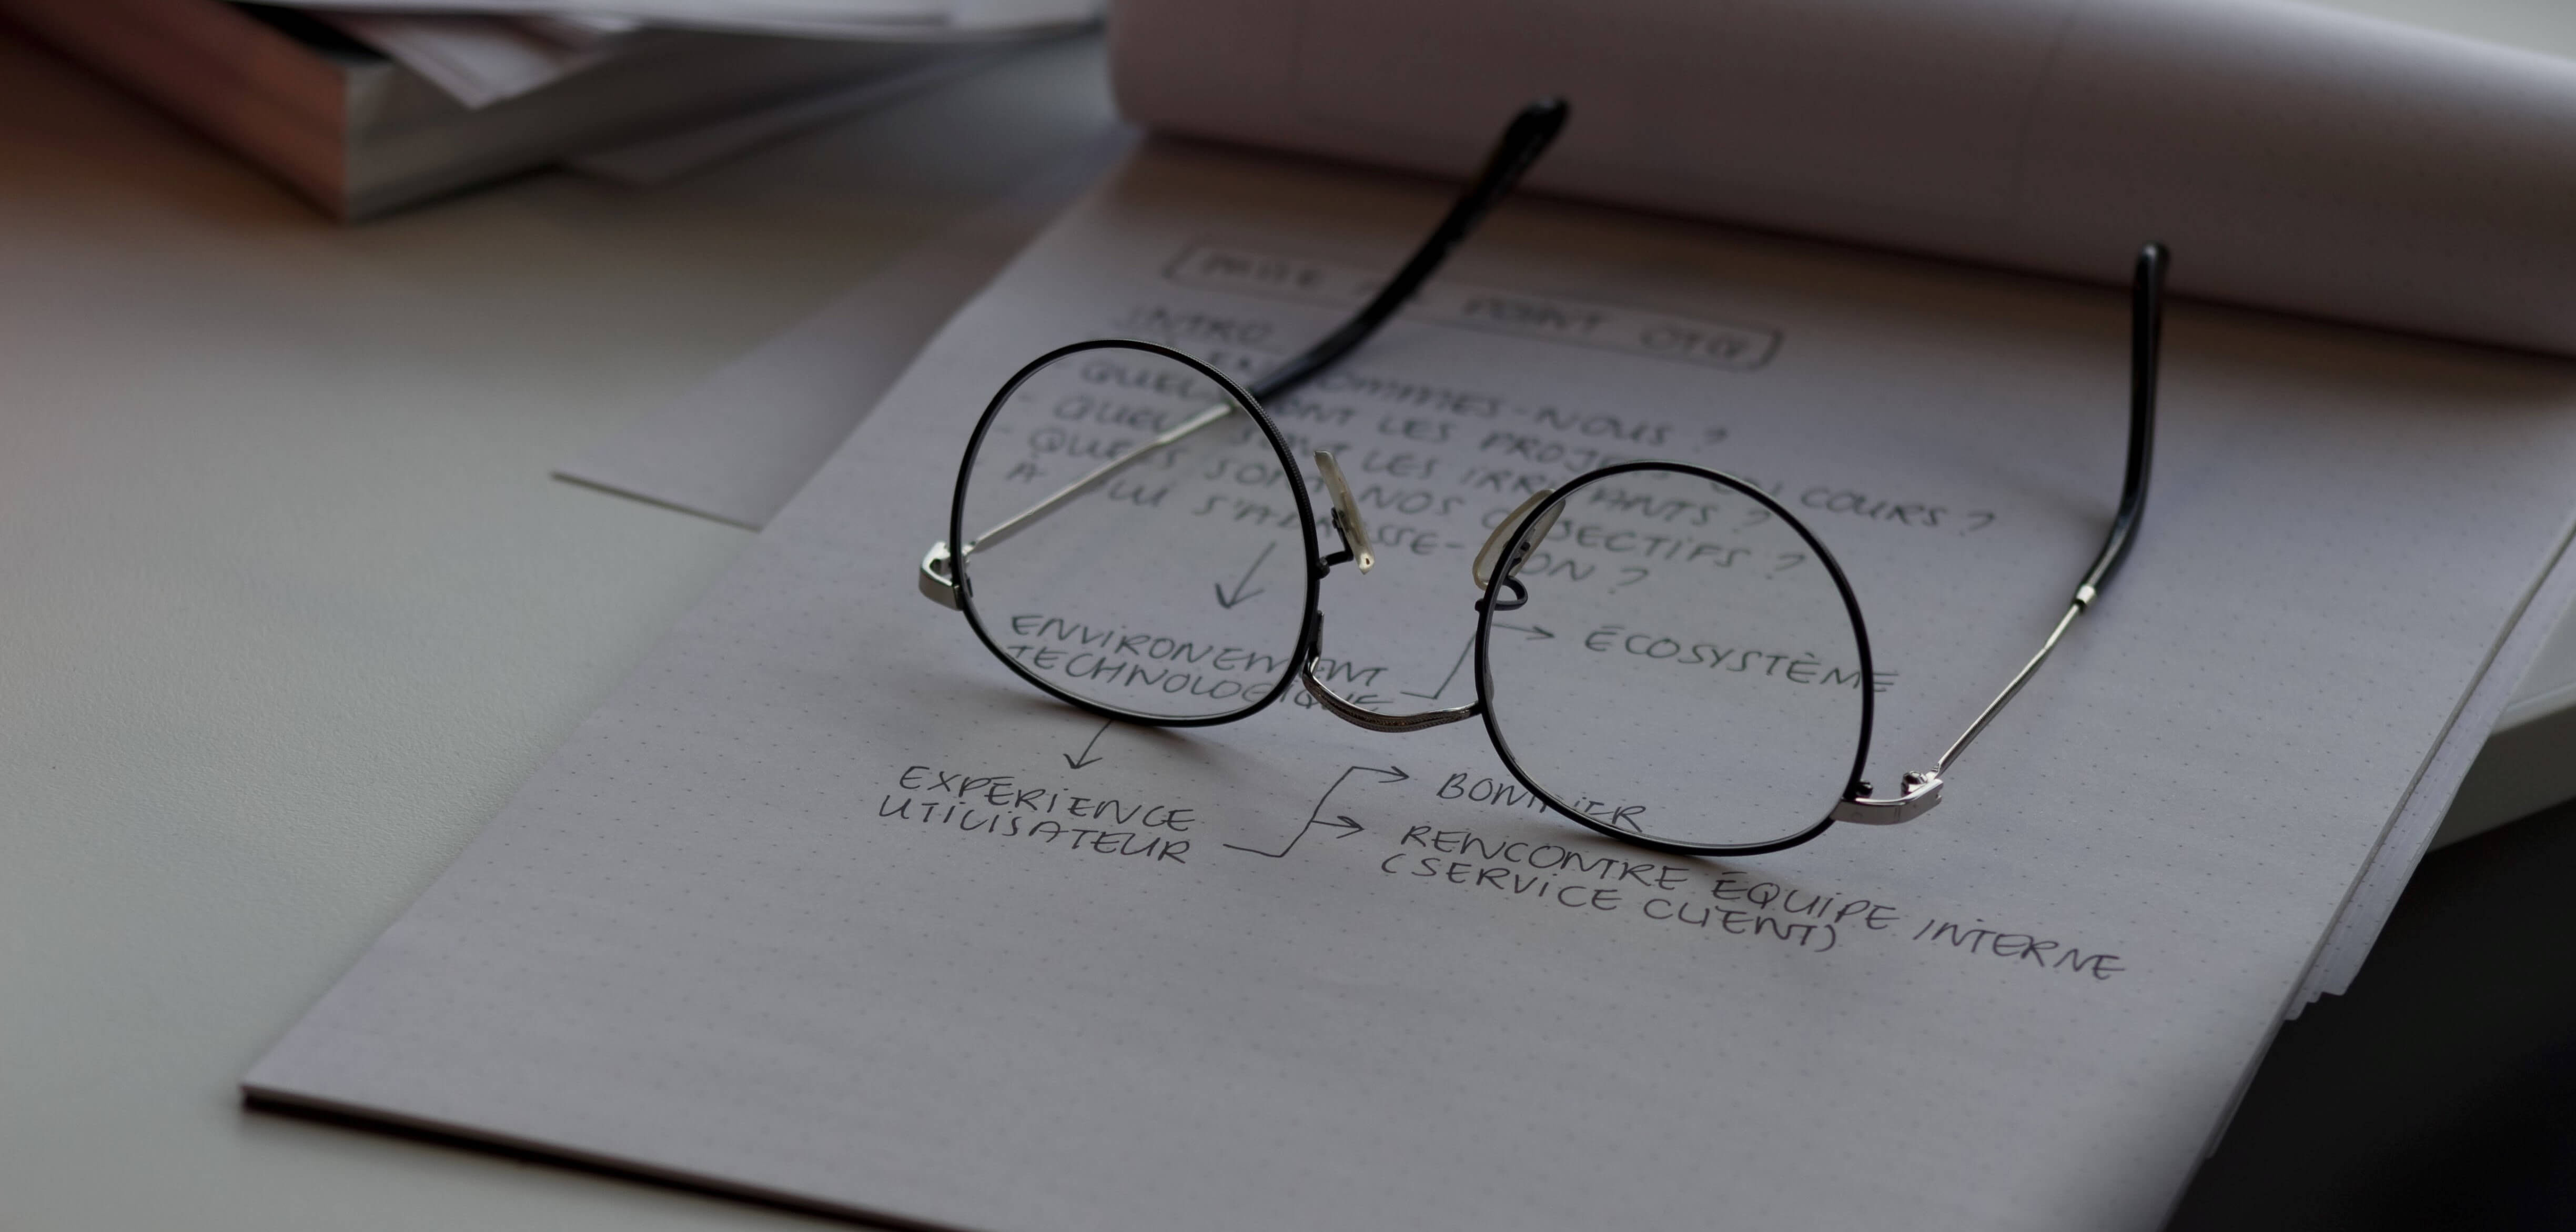 POINT
INTRO
EN SOMMES-NOUS ?
QUELS SONT LES PROJETS EN COURS ?
- QUELS SONT LES IRRITANTS ?
- QUELS SONT NOS OBJECTIFS ?
À QUI S'ADRESSE-ON ?
ENVIRONEMENT
TECHNOLOGIQUE
ÉCOSYSTÈME
EXPERIENCE
UTILISATEUR
BONIFIER
RENCONTRE ÉQUIPE INTERNE
(SERVICE CLIENT)